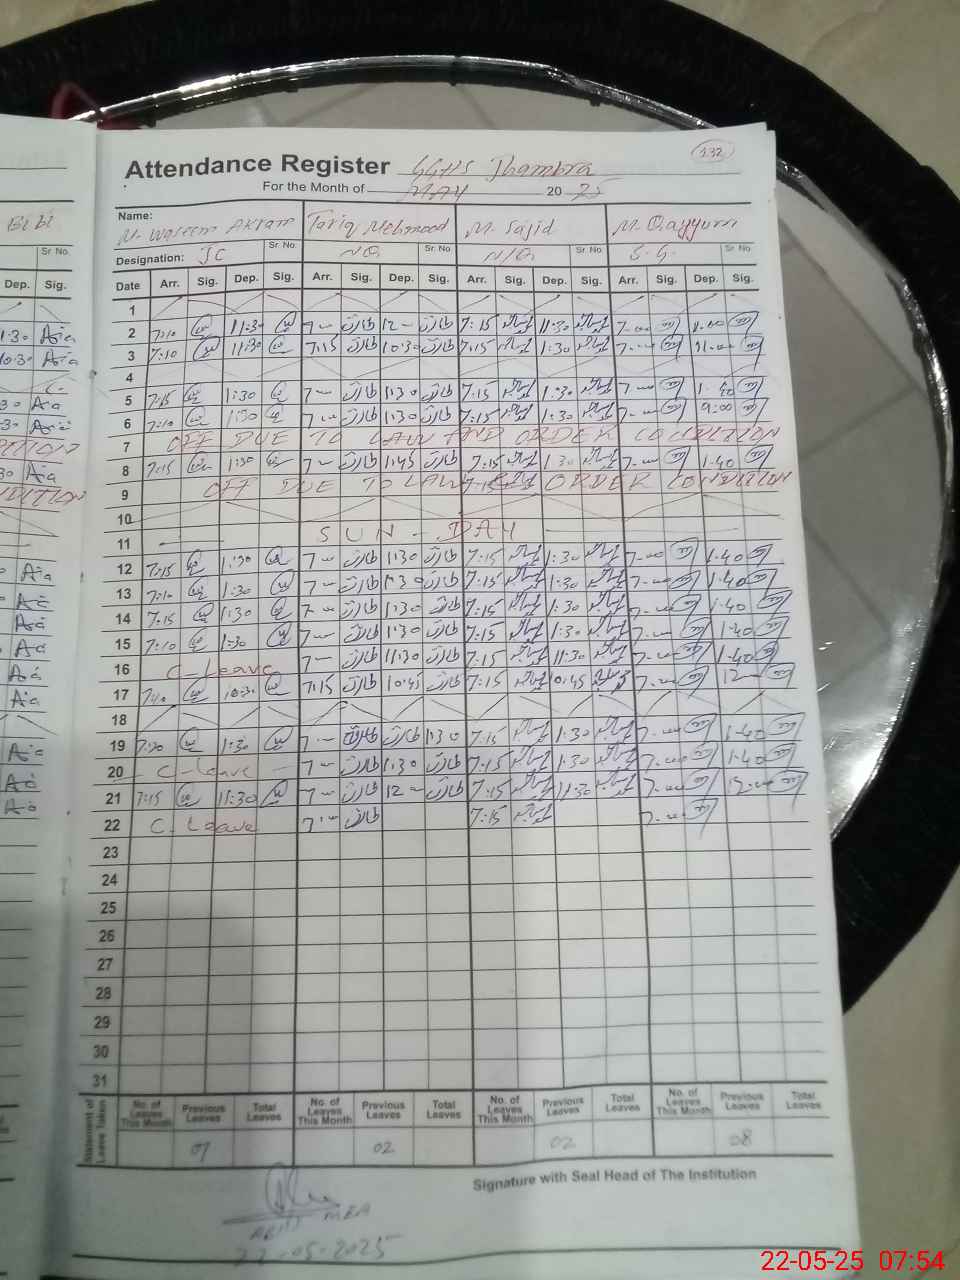 132
Attendance Register GGHS Jhambra
For the Month of MAY 20 25
Name: M. Waseem Akram Tariq Mehmood M. Sajid M. Qayyum
Bibi
Designation: JC Sr No. N.Q. Sr No. N/Q. Sr No. S.G. Sr No.
Dep. Sig. Date Arr. Sig. Dep. Sig. Arr. Sig. Dep. Sig. Arr. Sig. Dep. Sig. Arr. Sig. Dep. Sig.
1
2 7:10 11:30 7 — طارق 12 — طارق 7:15 11:30 7-00
3 7:10 11:30 7:15 طارق 10:30 طارق 7:15 1:30 7-00 11-00
4
5 7:15 1:30 7 — طارق 1:30 طارق 7:15 1:30 7-00 1-40
6 7:10 1:30 7 — طارق 1:30 طارق 7:15 1:30 7-00 9:00
7 OFF DUE TO LAW AND ORDER CONDITION
8 7:15 1:30 7 — طارق 1:45 طارق 7:15 1:30 7-00 1-40
9 OFF DUE TO LAW ORDER CONDITION
10
11 SUN - DAY
12 7:15 1:30 7 — طارق 1:30 طارق 7:15 1:30 7-00 1-40
13 7:10 1:30 7 — طارق 1:30 طارق 7:15 1:30 7-00 1-40
14 7:15 1:30 7 — طارق 1:30 طارق 7:15 1:30 7-00 1-40
15 7:10 1:30 7 — طارق 1:30 طارق 7:15 1:30 7-00 1-40
16 C-Leave 7 — طارق 11:30 طارق 7:15 11:30 7-00 1-40
17 7:10 10:30 7:15 طارق 10:45 طارق 7:15 10:45 7-00 12-00
18
19 7:20 1:30 7 — طارق طارق 1:30 7:15 1:30 7-00 1-40
20 - C-leave - 7 — طارق 1:30 طارق 7:15 1:30 7-00 1-40
21 7:15 11:30 7 — طارق 12 — طارق 7:15 11:30 7-00 12-00
22 C. Leave 7 — طارق 7:15 7-00
23
24
25
26
27
28
29
30
31
Statement of Leave Taken No. of Leaves This Month Previous Leaves Total Leaves No. of Leaves This Month Previous Leaves Total Leaves No. of Leaves This Month Previous Leaves Total Leaves No. of Leaves This Month Previous Leaves Total Leaves
07 02 02 08
Signature with Seal Head of The Institution
MEA
22-05-2025
22-05-25 07:54